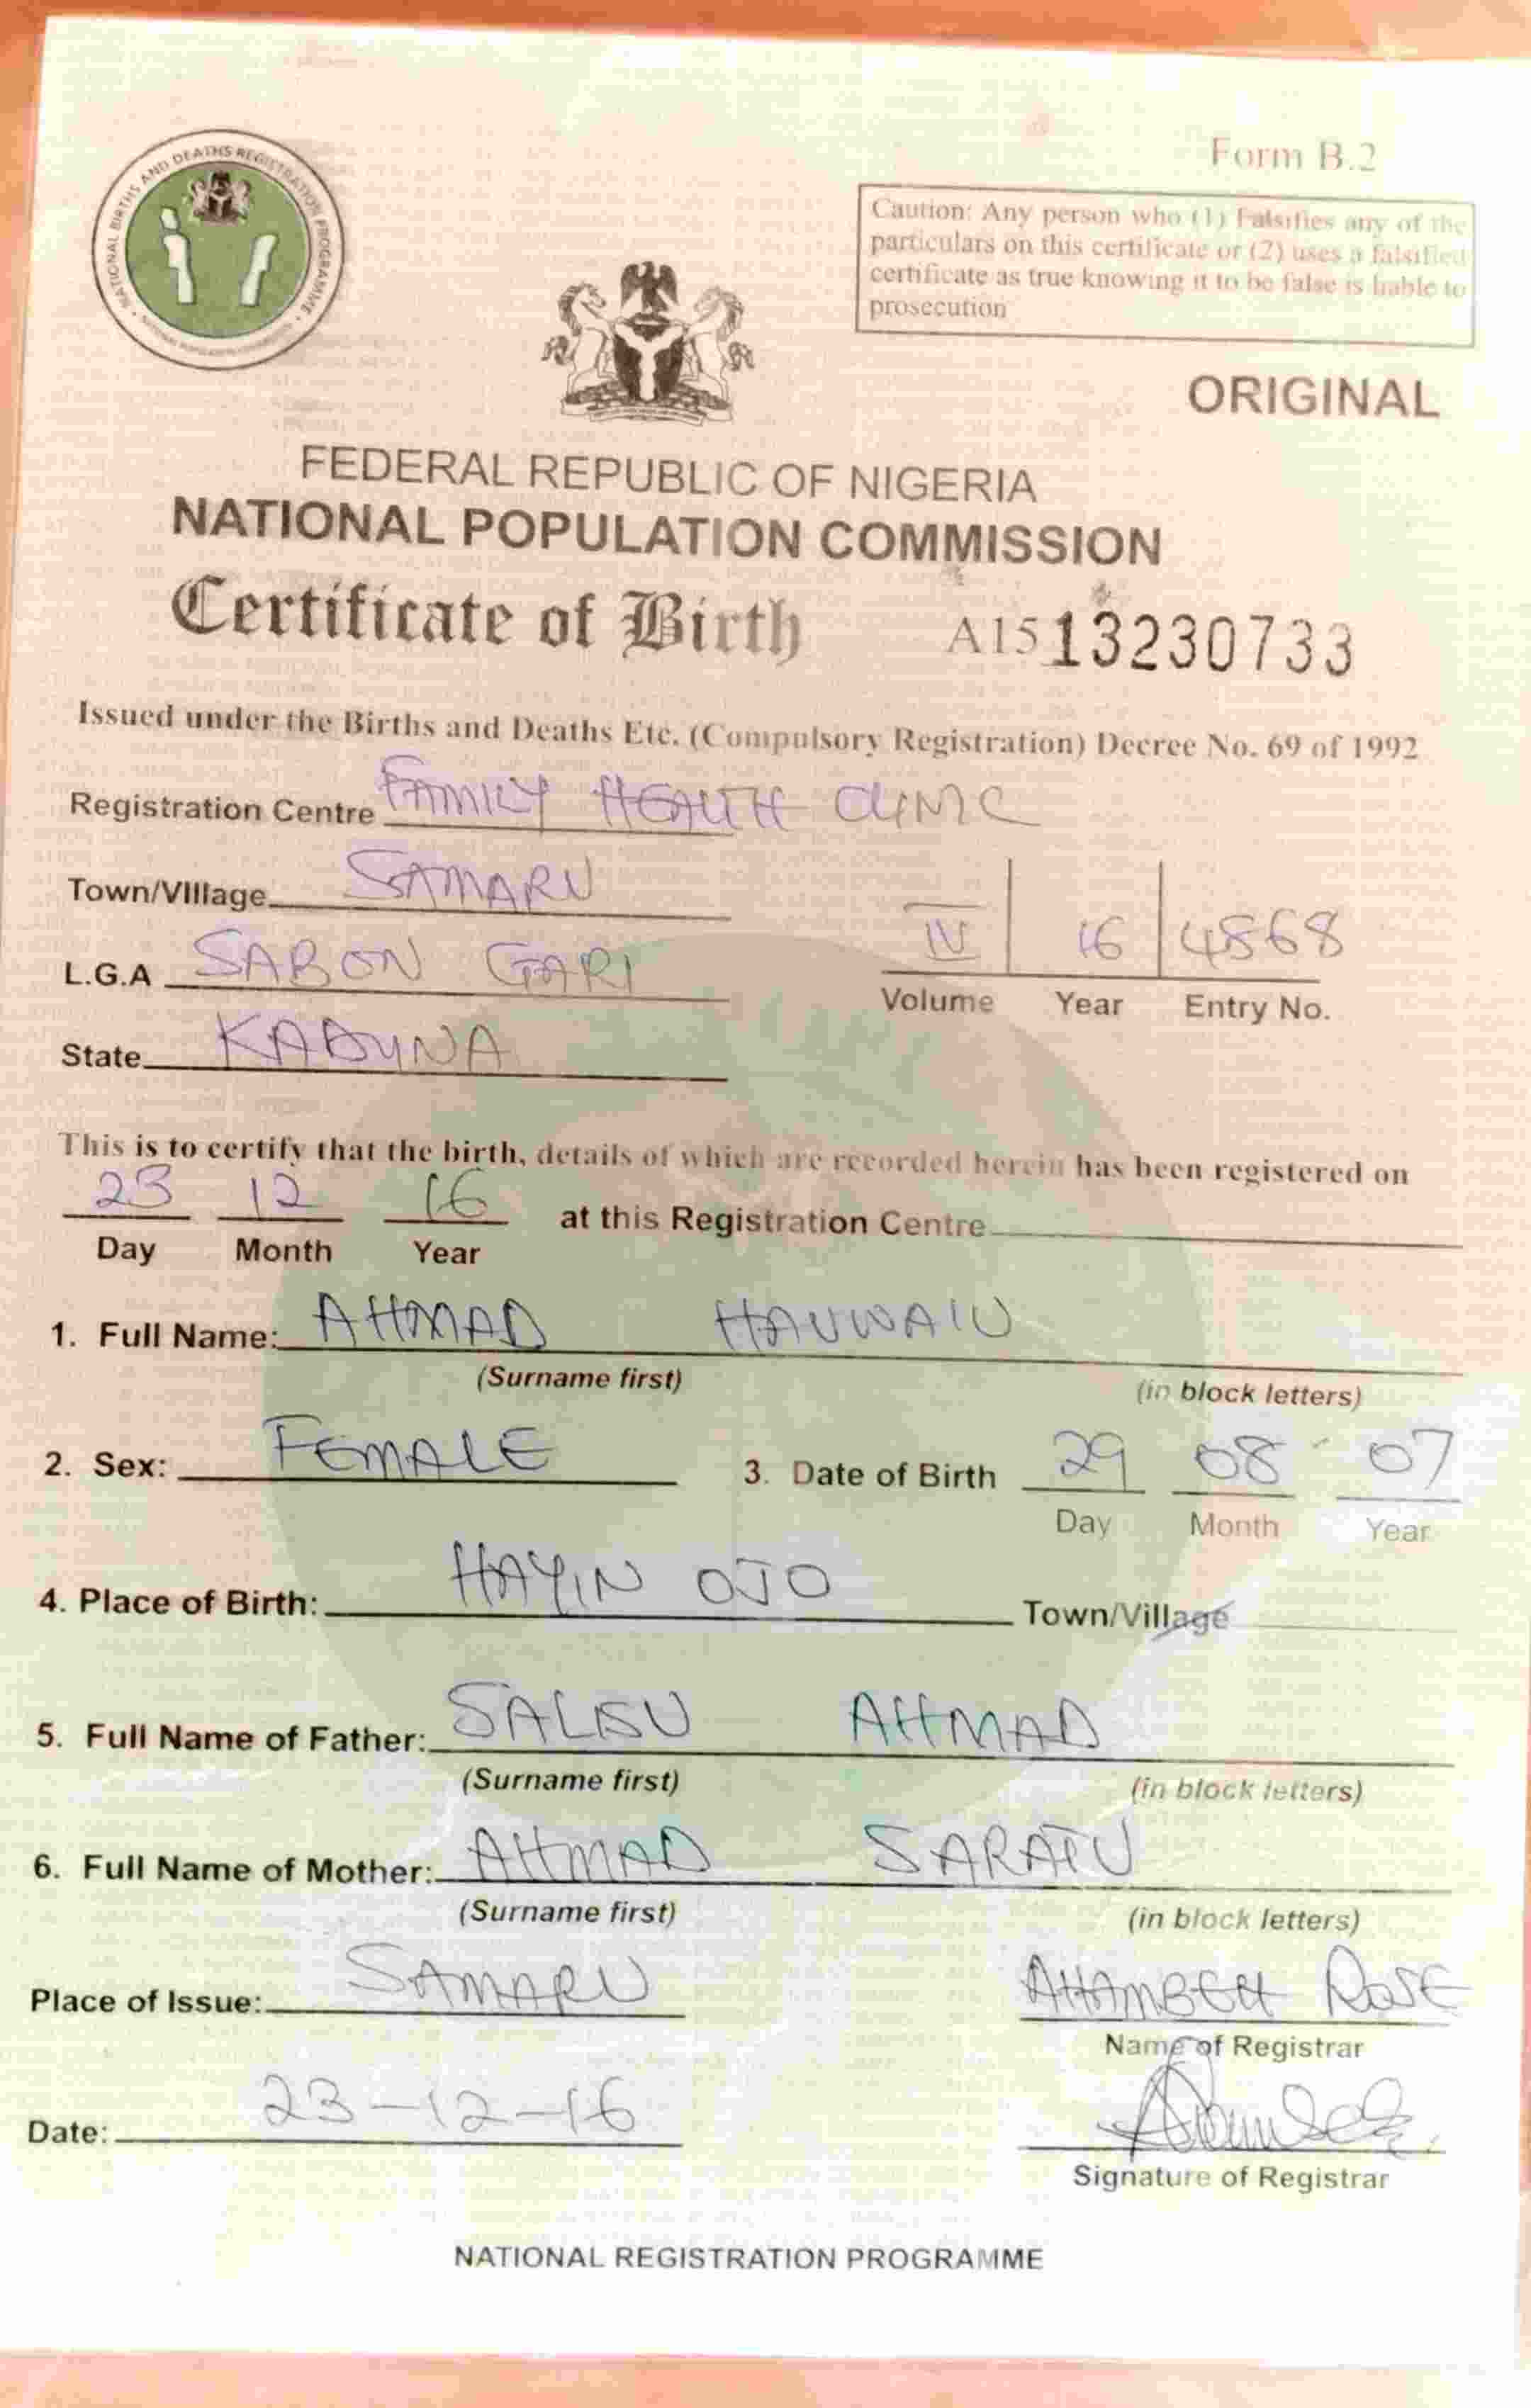 NATIONAL BIRTHS AND DEATHS REGISTRATION PROGRAMME
Form B.2
Caution: Any person who (1) Falsifies any of the
particulars on this certificate or (2) uses a falsified
certificate as true knowing it to be false is liable to
prosecution
ORIGINAL
FEDERAL REPUBLIC OF NIGERIA
NATIONAL POPULATION COMMISSION
Certificate of Birth A15 13230733
Issued under the Births and Deaths Etc. (Compulsory Registration) Decree No. 69 of 1992
Registration Centre FAMILY HEALTH CLINIC
Town/Village SAMARU
L.G.A SABON GARI
IV 16 4568
Volume Year Entry No.
State KADUNA
This is to certify that the birth, details of which are recorded herein has been registered on
23 12 16 at this Registration Centre
Day Month Year
1. Full Name: AHMAD HAUWAIU
(Surname first) (in block letters)
2. Sex: FEMALE 3. Date of Birth 29 08 07
Day Month Year
4. Place of Birth: HAYIN OJO Town/Village
5. Full Name of Father: SALISU AHMAD
(Surname first) (in block letters)
6. Full Name of Mother: AHMAD SARATU
(Surname first) (in block letters)
Place of Issue: SAMARU ROSE
Name of Registrar
Date: 23-12-16
Signature of Registrar
NATIONAL REGISTRATION PROGRAMME